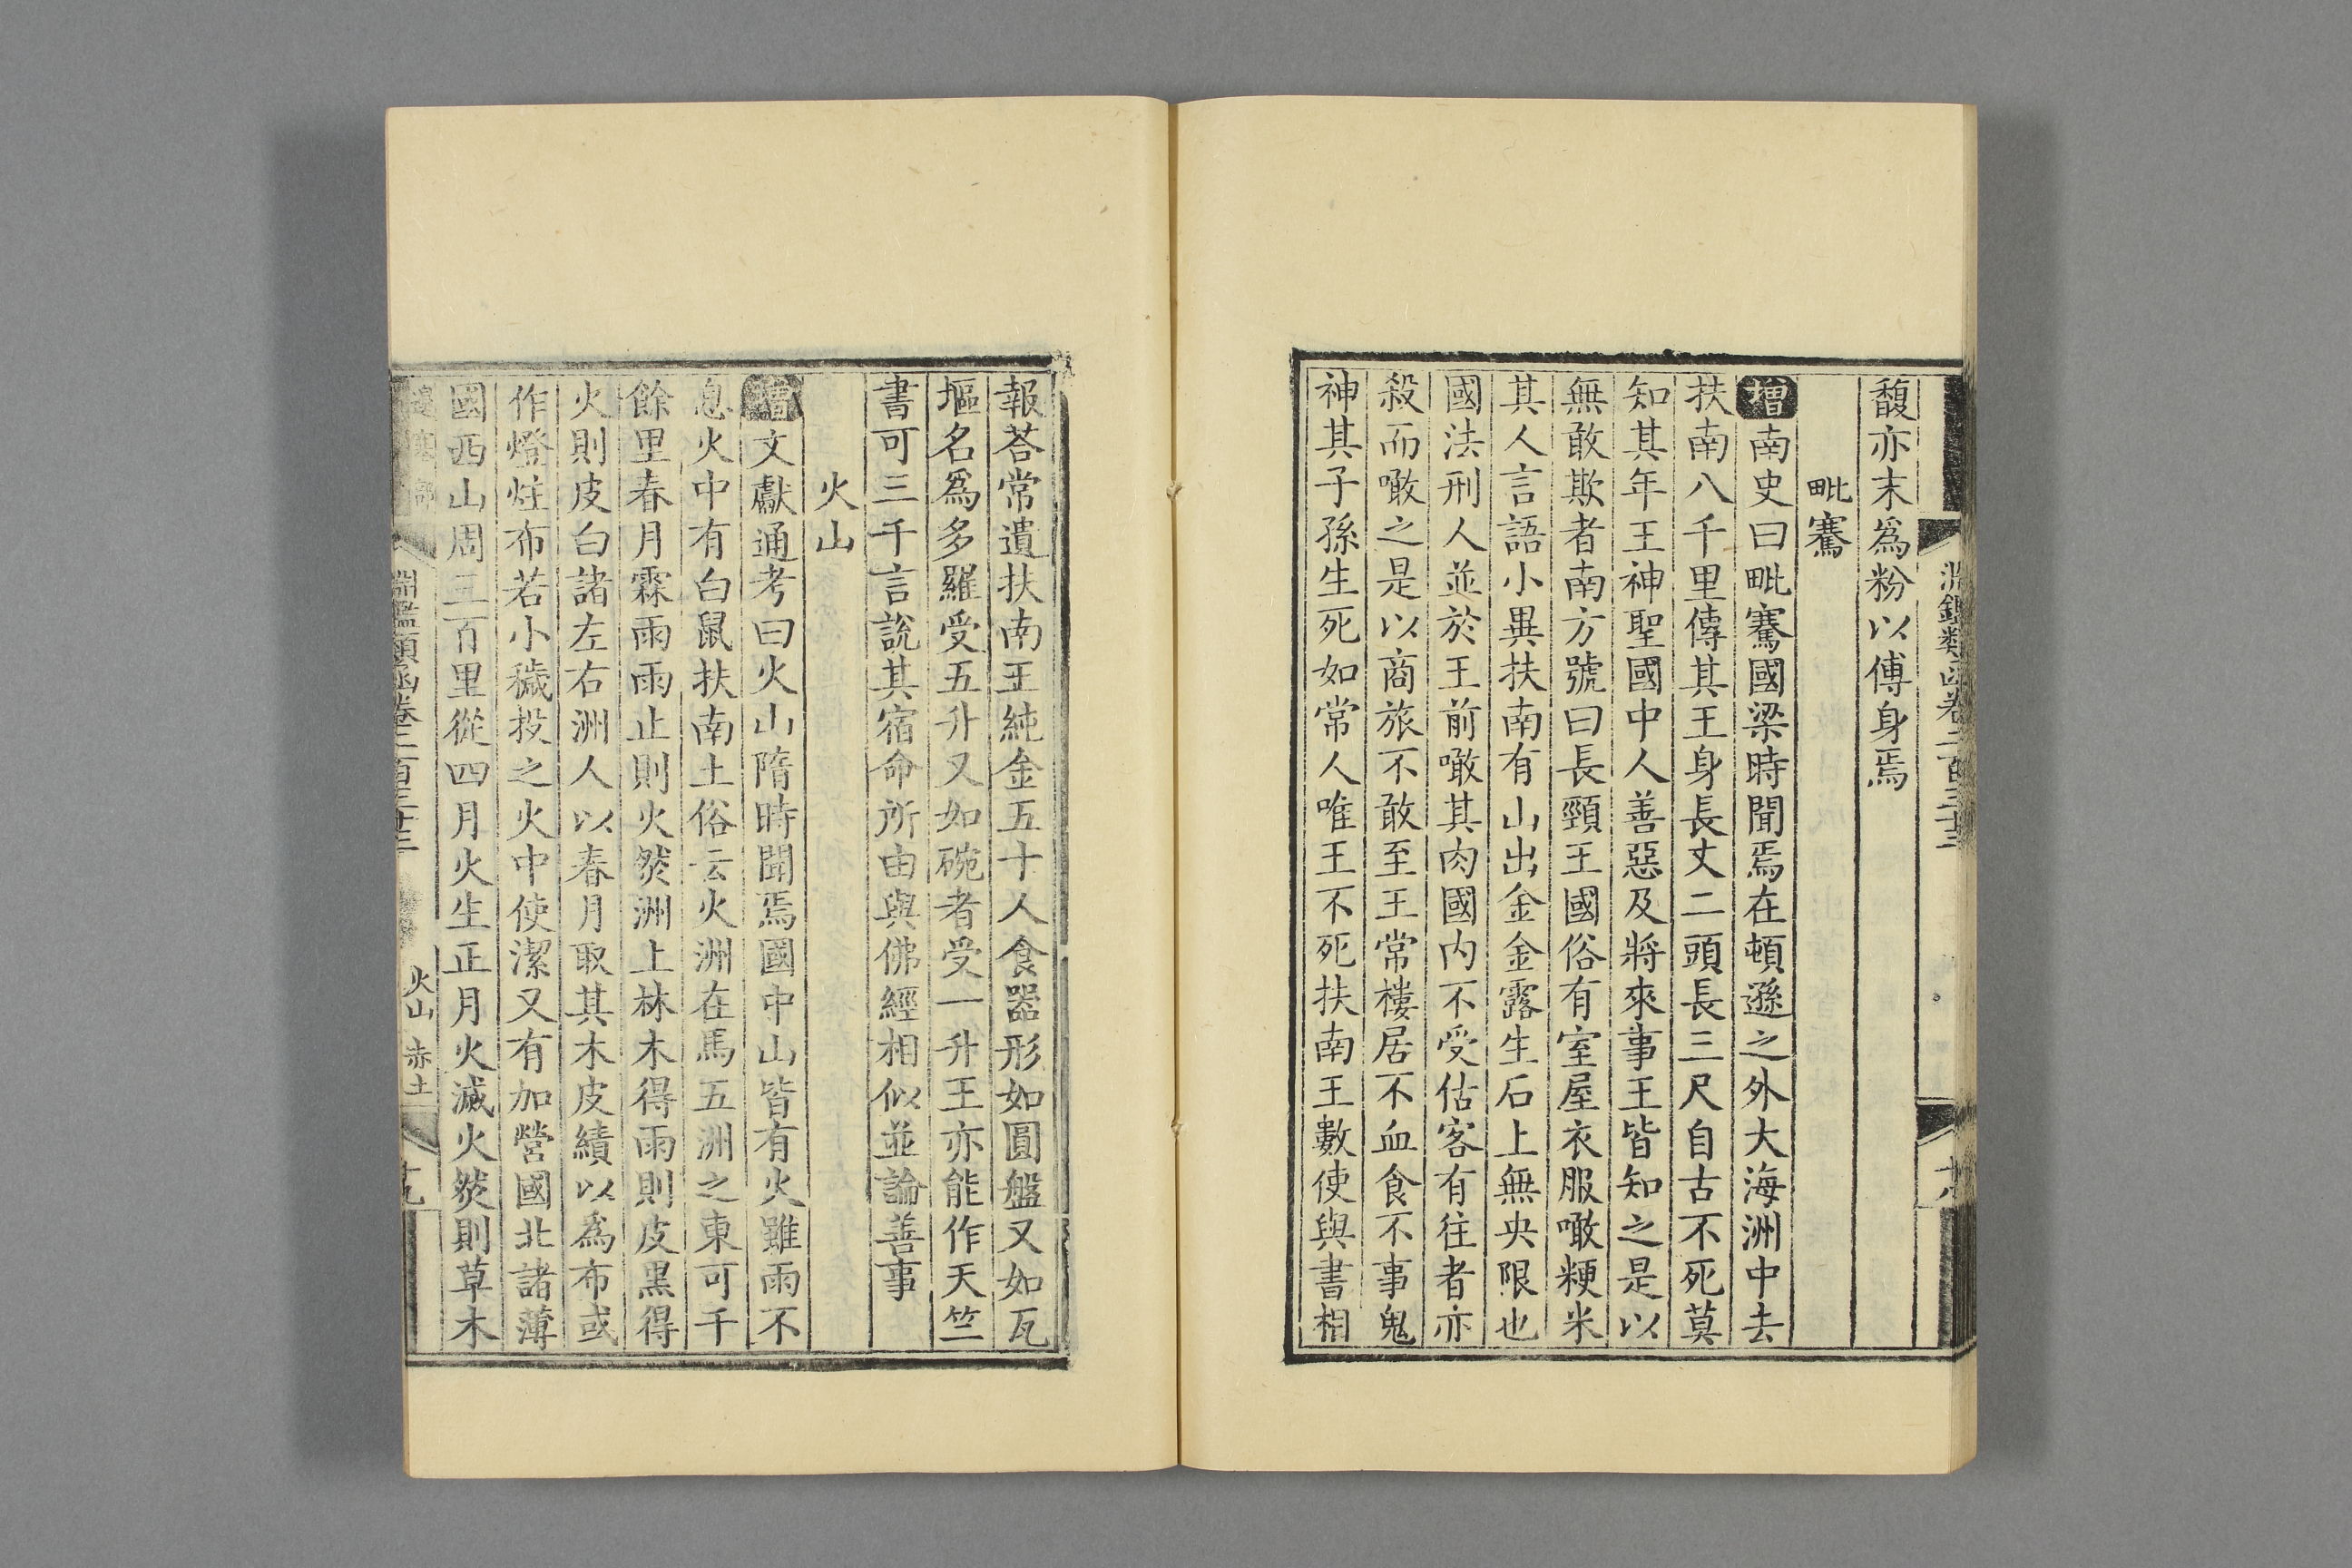 淵鑑類函卷二百三十三
十八
馥亦末爲粉以傅身焉
毗騫
增南史曰毗騫國梁時聞焉在頓遜之外大海洲中去
扶南八千里傳其王身長丈二頭長三尺自古不死莫
知其年王神聖國中人善惡及將來事王皆知之是以
無敢欺者南方號曰長頸王國俗有室屋衣服噉粳米
其人言語小異扶南有山出金金露生石上無央限也
國法刑人並於王前噉其肉國內不受估客有往者亦
殺而噉之是以商旅不敢至王常樓居不血食不事鬼
神其子孫生死如常人唯王不死扶南王數使與書相
報荅常遺扶南王純金五十人食器形如圓盤又如瓦
塸名爲多羅受五升又如碗者受一升王亦能作天竺
書可三千言說其宿命所由與佛經相似並論善事
火山
增文獻通考曰火山隋時聞焉國中山皆有火雖雨不
息火中有白鼠扶南土俗云火洲在馬五洲之東可千
餘里春月霖雨雨止則火燃洲上林木得雨則皮黑得
火則皮白諸左右洲人以春月取其木皮績以爲布或
作燈炷布若小穢投之火中使潔又有加營國北諸薄
國西山周三百里從四月火生正月火滅火燃則草木
邊塞部
淵鑑類函卷二百三十三
火山 赤土
十九